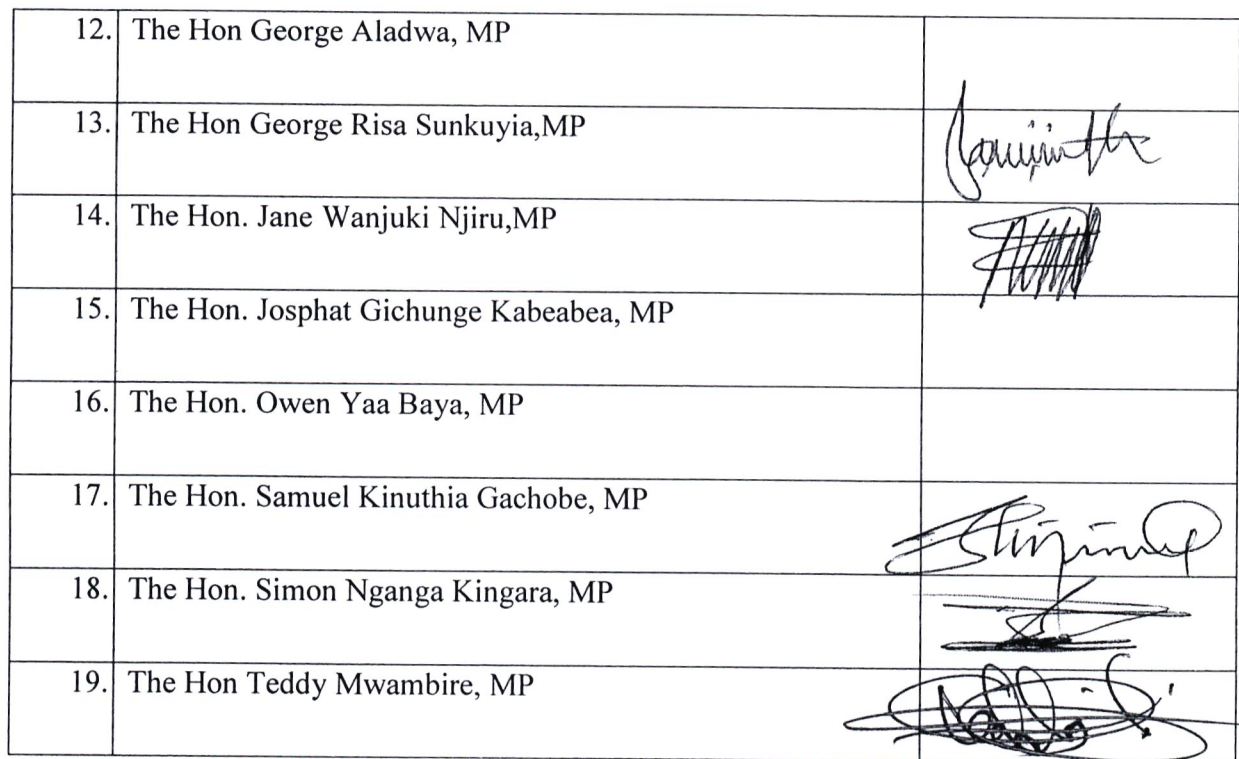 12. The Hon George Aladwa, MP
13. The Hon George Risa Sunkuyia,MP
14. The Hon. Jane Wanjuki Njiru,MP
15. The Hon. Josphat Gichunge Kabeabea, MP
16. The Hon. Owen Yaa Baya, MP
17. The Hon. Samuel Kinuthia Gachobe, MP
18. The Hon. Simon Nganga Kingara, MP
19. The Hon Teddy Mwambire, MP